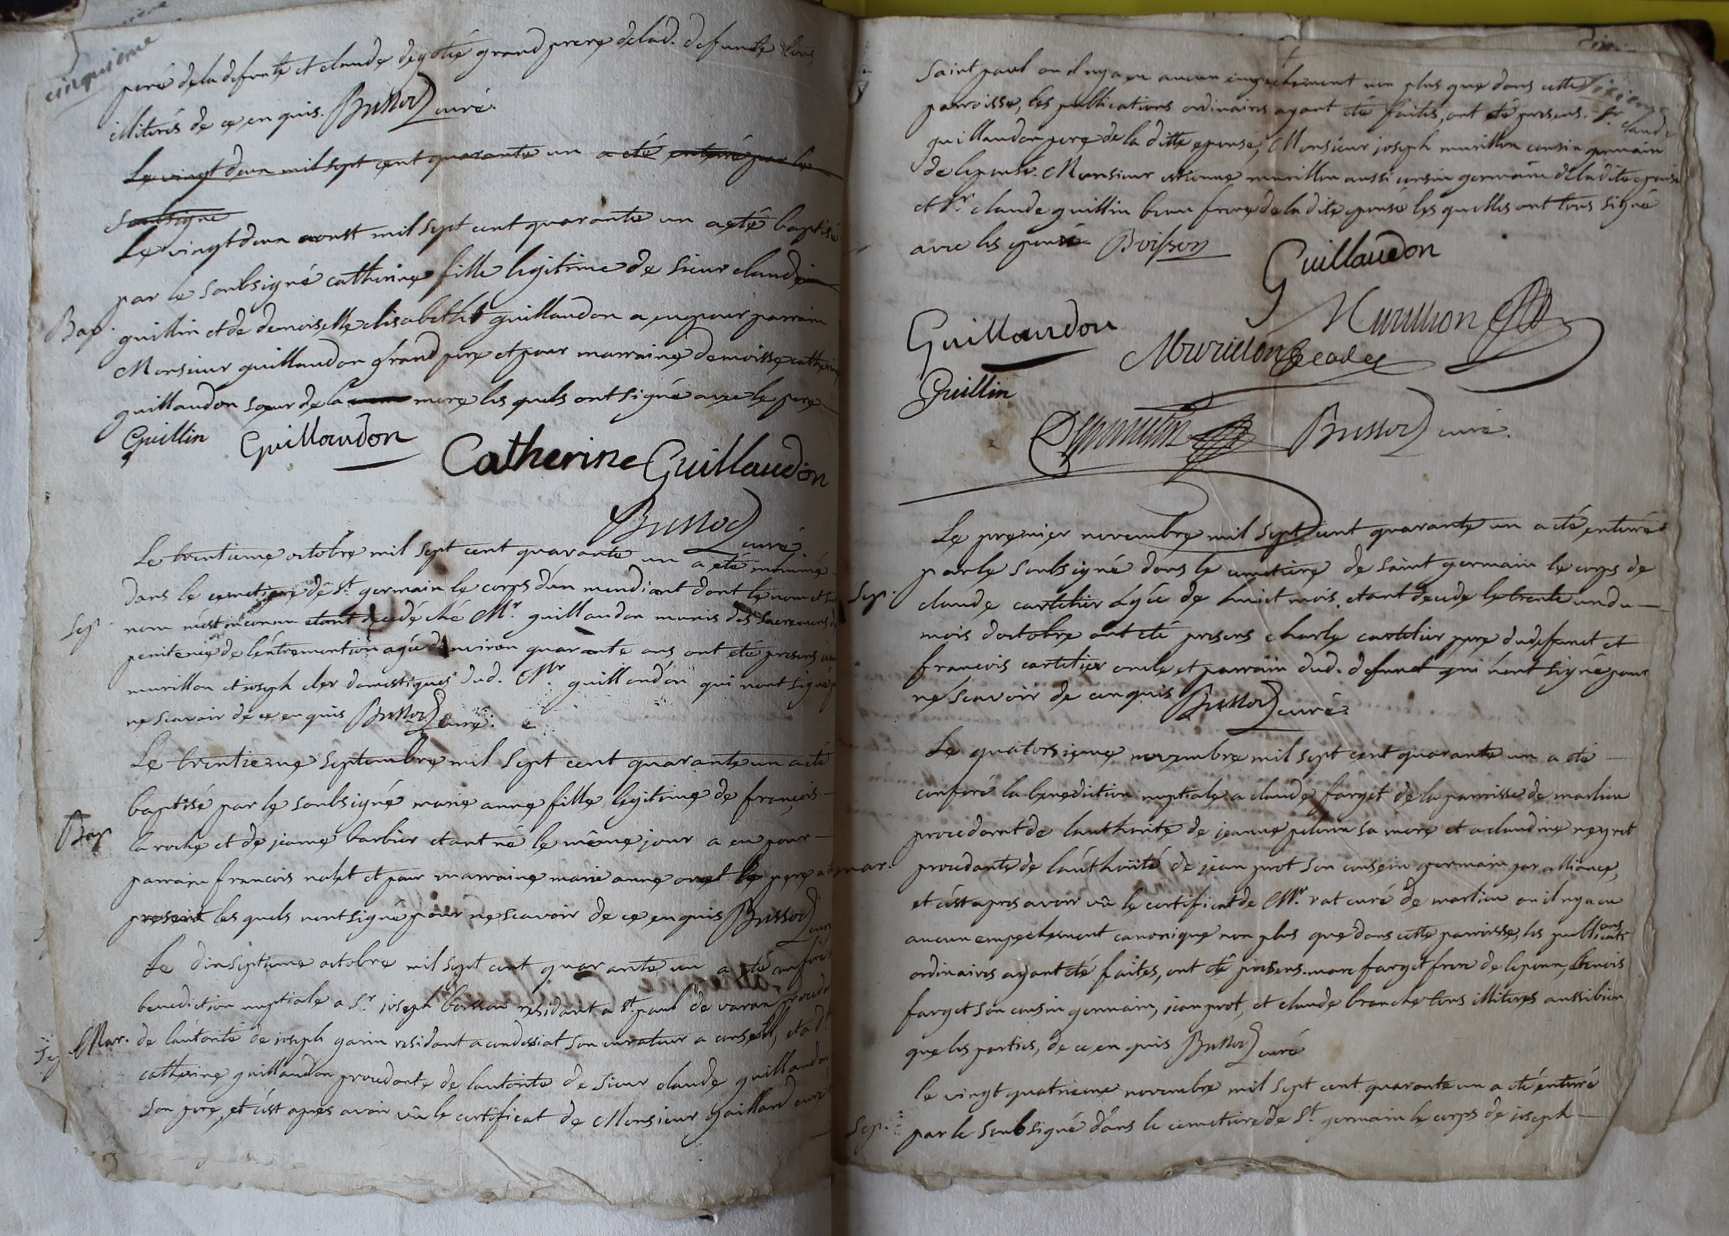 cinquieme
pere de la defunte et claude grand pere de lad. defunte tous
illiterés de ce enquis. Brossod curé.
Le vingt deux mil sept cent quarante un a eté enterré par le
soubsigné
Le vingt deux aoust mil sept cent quarante un a eté baptisé
par le soubsigné catherine fille legitime de sieur claude
Bap.
guillin et de demoiselle elisabeth guillaudon a eu pour parrain
Monsieur guillaudon grand pere et pour marraine demoisse catherine
guillaudon soeur de la mere les quels ont signé avec le pere
Guillin Guillaudon Catherine Guillaudon
Brossod curé
Le trentieme octobre mil sept cent quarante un a eté inhumé
dans le cemetiere de St. germain le corps d'un mendiant dont le nom et sur
Sep.
nom m'est inconnu etant decedé ché Mr. guillaudon munis des sacremens de
penitence de l'extremonction agé d'environ quarante ans ont eté presens
murillon et joseph cler domestiques dud. Mr guillaudon qui n'ont signé p
ne scavoir de ce enquis Brossod curé.
Le trentieme septembre mil sept cent quarante un a eté
baptisé par le soubsigné marie anne fille legitime de françois
Bap
la roche et de jeanne barbier etant né le même jour a eu pour
parrain francois et pour marraine marie anne le pere
present les quels n'ont signé pour ne scavoir de ce enquis Brossod curé
Le dixseptieme octobre mil sept cent quarante un a eté conferé
benediction nuptiale a Sr. joseph boisson residant a St. paul de varax procedt
Mar.
de l'autorité de joseph garin residant a condessiat son curateur a conseil, et a
catherine guillaudon procedante de l'autorité de sieur claude guillaudon
son pere, et c'est apres avoir vû le certificat de Monsieur gaillard curé
Sixieme
Saint paul ou il n'y a eu aucun empechement non plus que dans cette
parroisse, les publications ordinaires ayant eté faites, ont eté presens. Sr. claude
guillaudon pere de la ditte epouse, Monsieur joseph murillon cousin germain
de lepouse. Monsieur etienne murillon aussi cousin germain de la dite epouse
et Sr. claude guillin beau frere de la dite epouse les quelles ont tous signé
avec les epoux Boisson Guillaudon
Guillaudon Murillon
Murillon
Guillin
Brossod curé.
Le premier novembre mil sept cent quarante un a eté enterré
par le soubsigné dans le cemetiere de saint germain le corps de
Sep.
claude cartelier agée de huict mois, etant decede le trente un du
mois d'octobre ont eté presens charle cartelier pere dud. defunct et
francois cartelier oncle et parrain dud. defunct qui n'ont signé pour
ne scavoir de ce enquis Brossod curé.
Le quatorsieme novembre mil sept cent quarante un a eté
conferé la benediction nuptiale a claude farget de la parroisse de marlieu
procedant de l'authorité de jeanne sa mere et a claudine neyret
mar.
procedante de l'authorité de jean prot son cousin germain par alliance,
et c'est apres avoir vû le certificat de Mr. rat curé de marlieu ou il n'y a eu
aucun empechement canonique non plus que dans cette parroisse, les publications
ordinaires ayant eté faites, ont eté presens. marc farget frere de lepoux, benois
farget son cousin germain, jean prot, et claude branche tous illiterés aussi bien
que les parties, de ce enquis Brossod curé
le vingt quatrieme novembre mil sept cent quarante un a eté enterré
Sep.
par le soubsigné dans le cemetiere de St. germain le corps de joseph